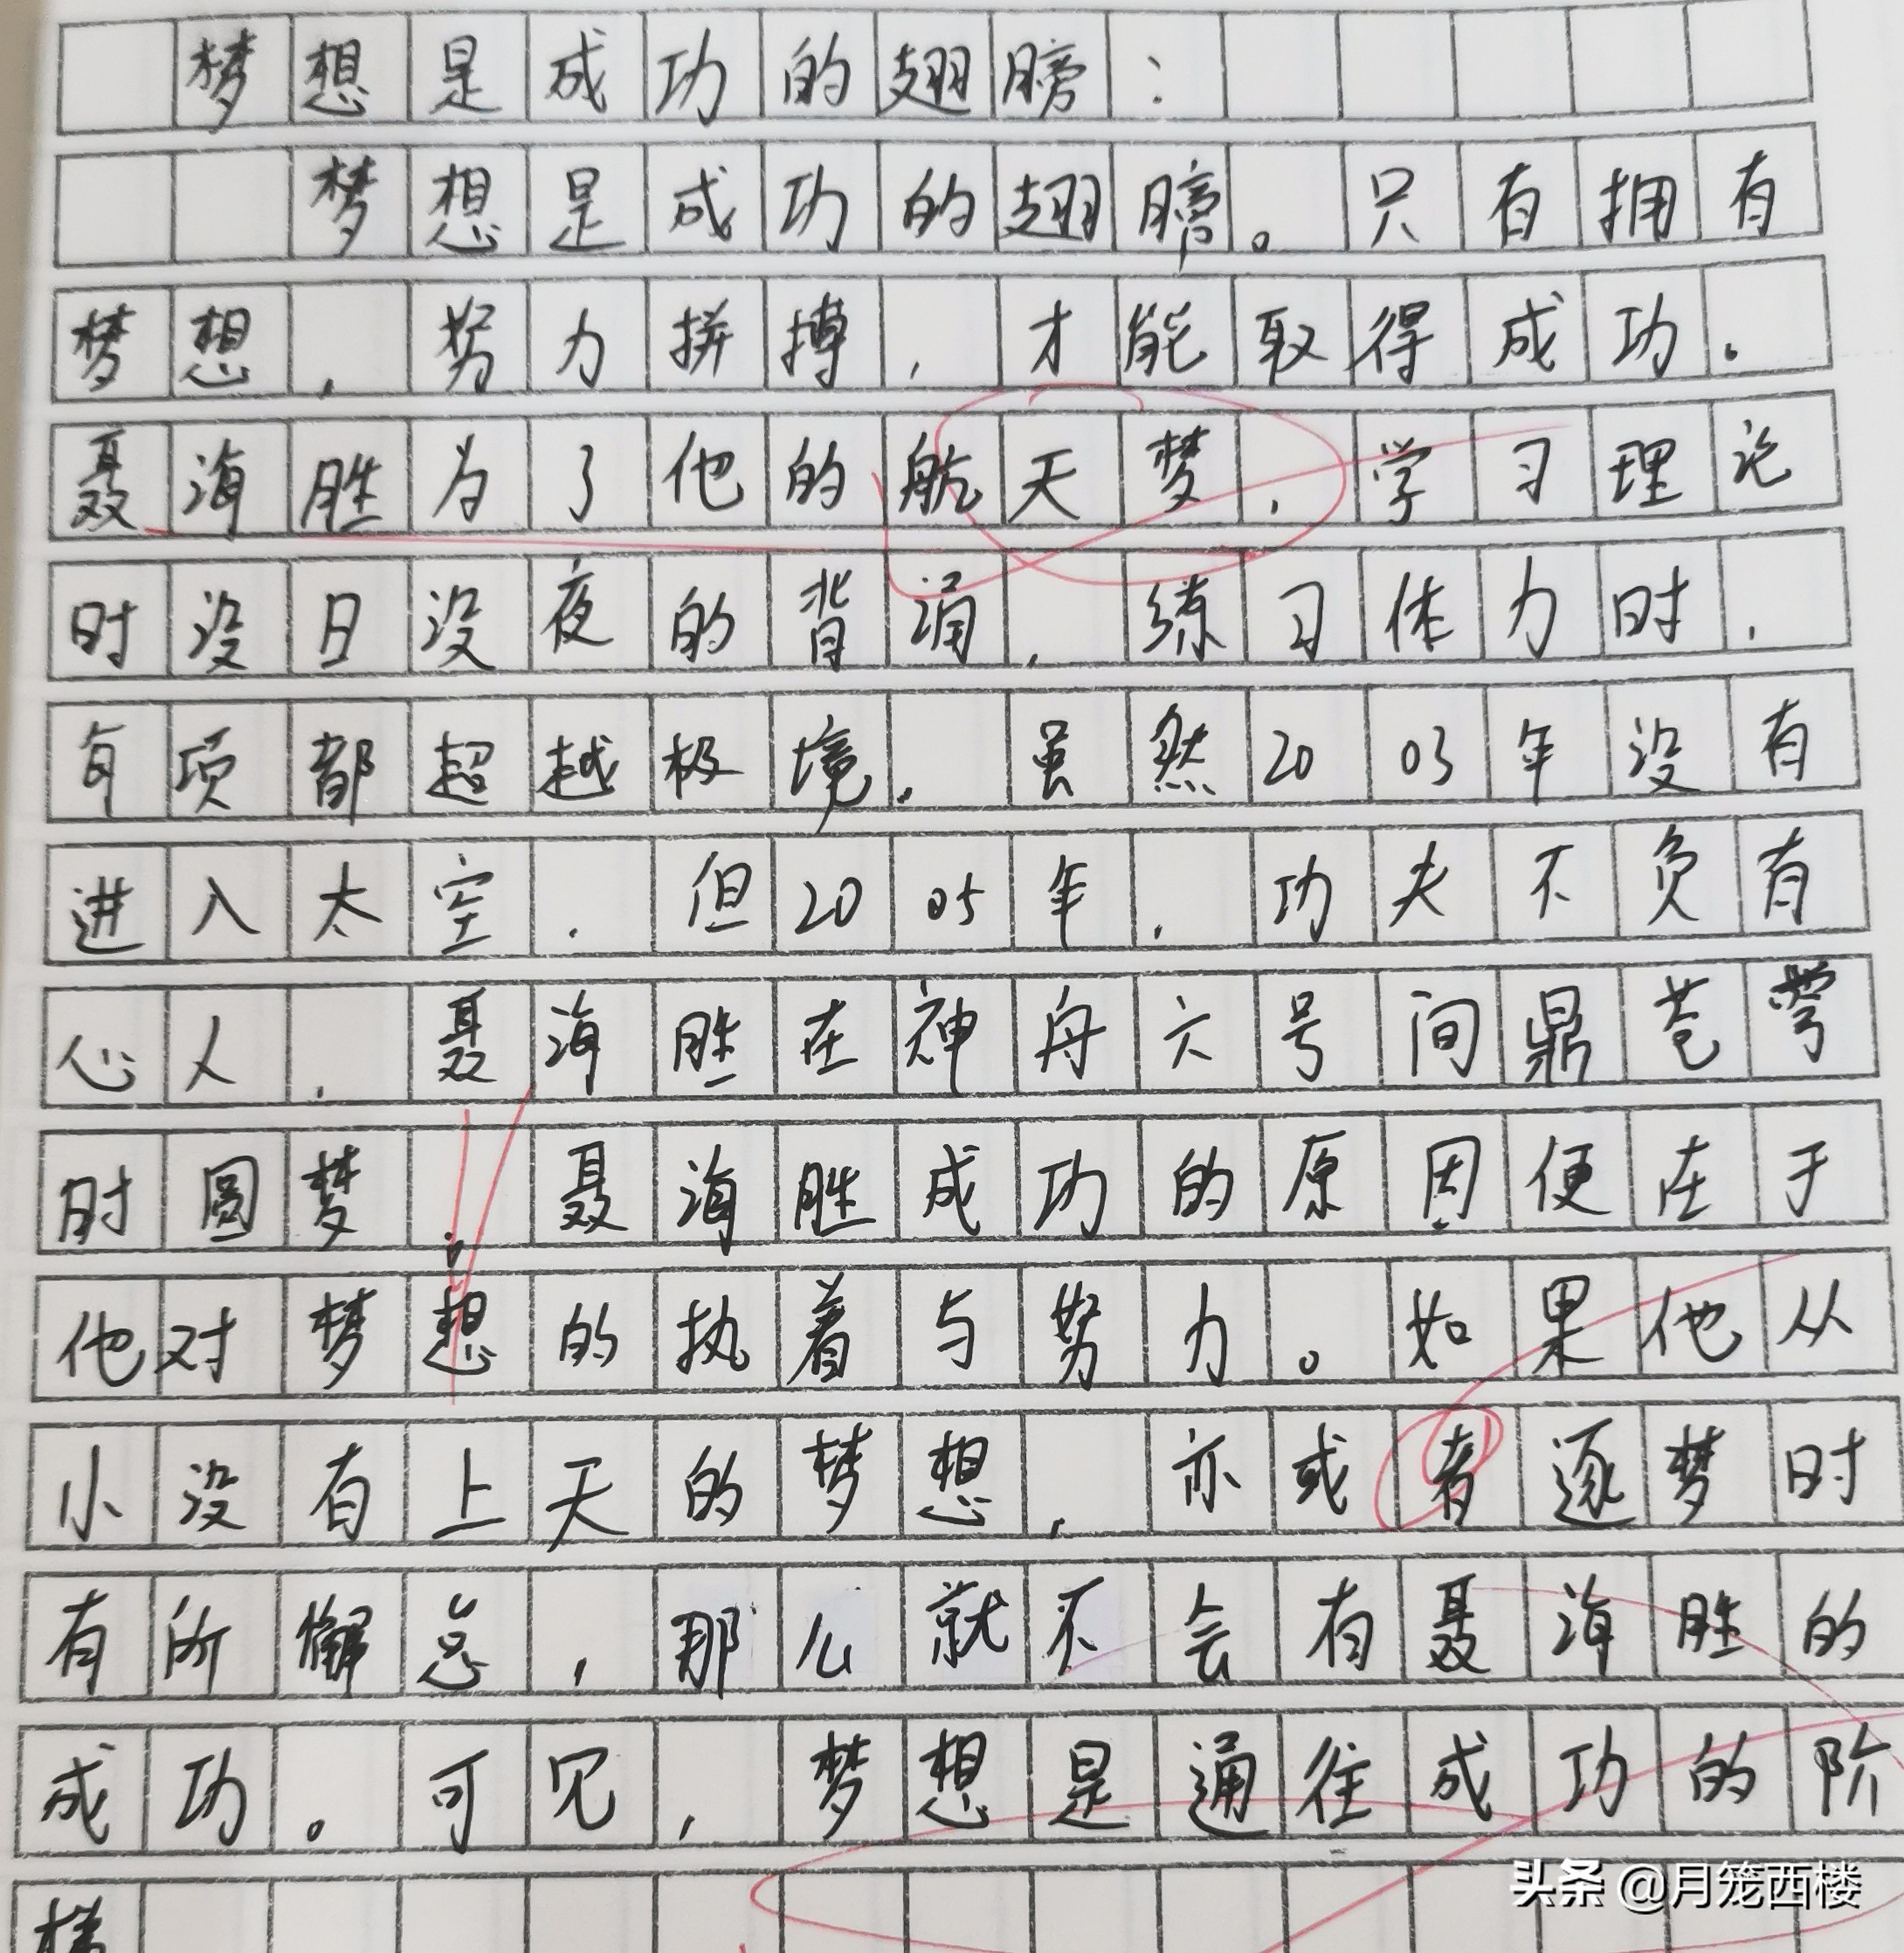 梦想是成功的翅膀：
梦想是成功的翅膀。只有拥有
梦想，努力拼搏，才能取得成功。
聂海胜为了他的航天梦，学习理论
时没日没夜的背诵，练习体力时，
每项都超越极境。虽然2003年没有
进入太空，但2005年，功夫不负有
心人，聂海胜在神舟六号问鼎苍穹
时圆梦。聂海胜成功的原因便在于
他对梦想的执着与努力。如果他从
小没有上天的梦想，亦或者逐梦时
有所懈怠，那么就不会有聂海胜的
成功。可见，梦想是通往成功的阶
梯
头条 @月笼西楼